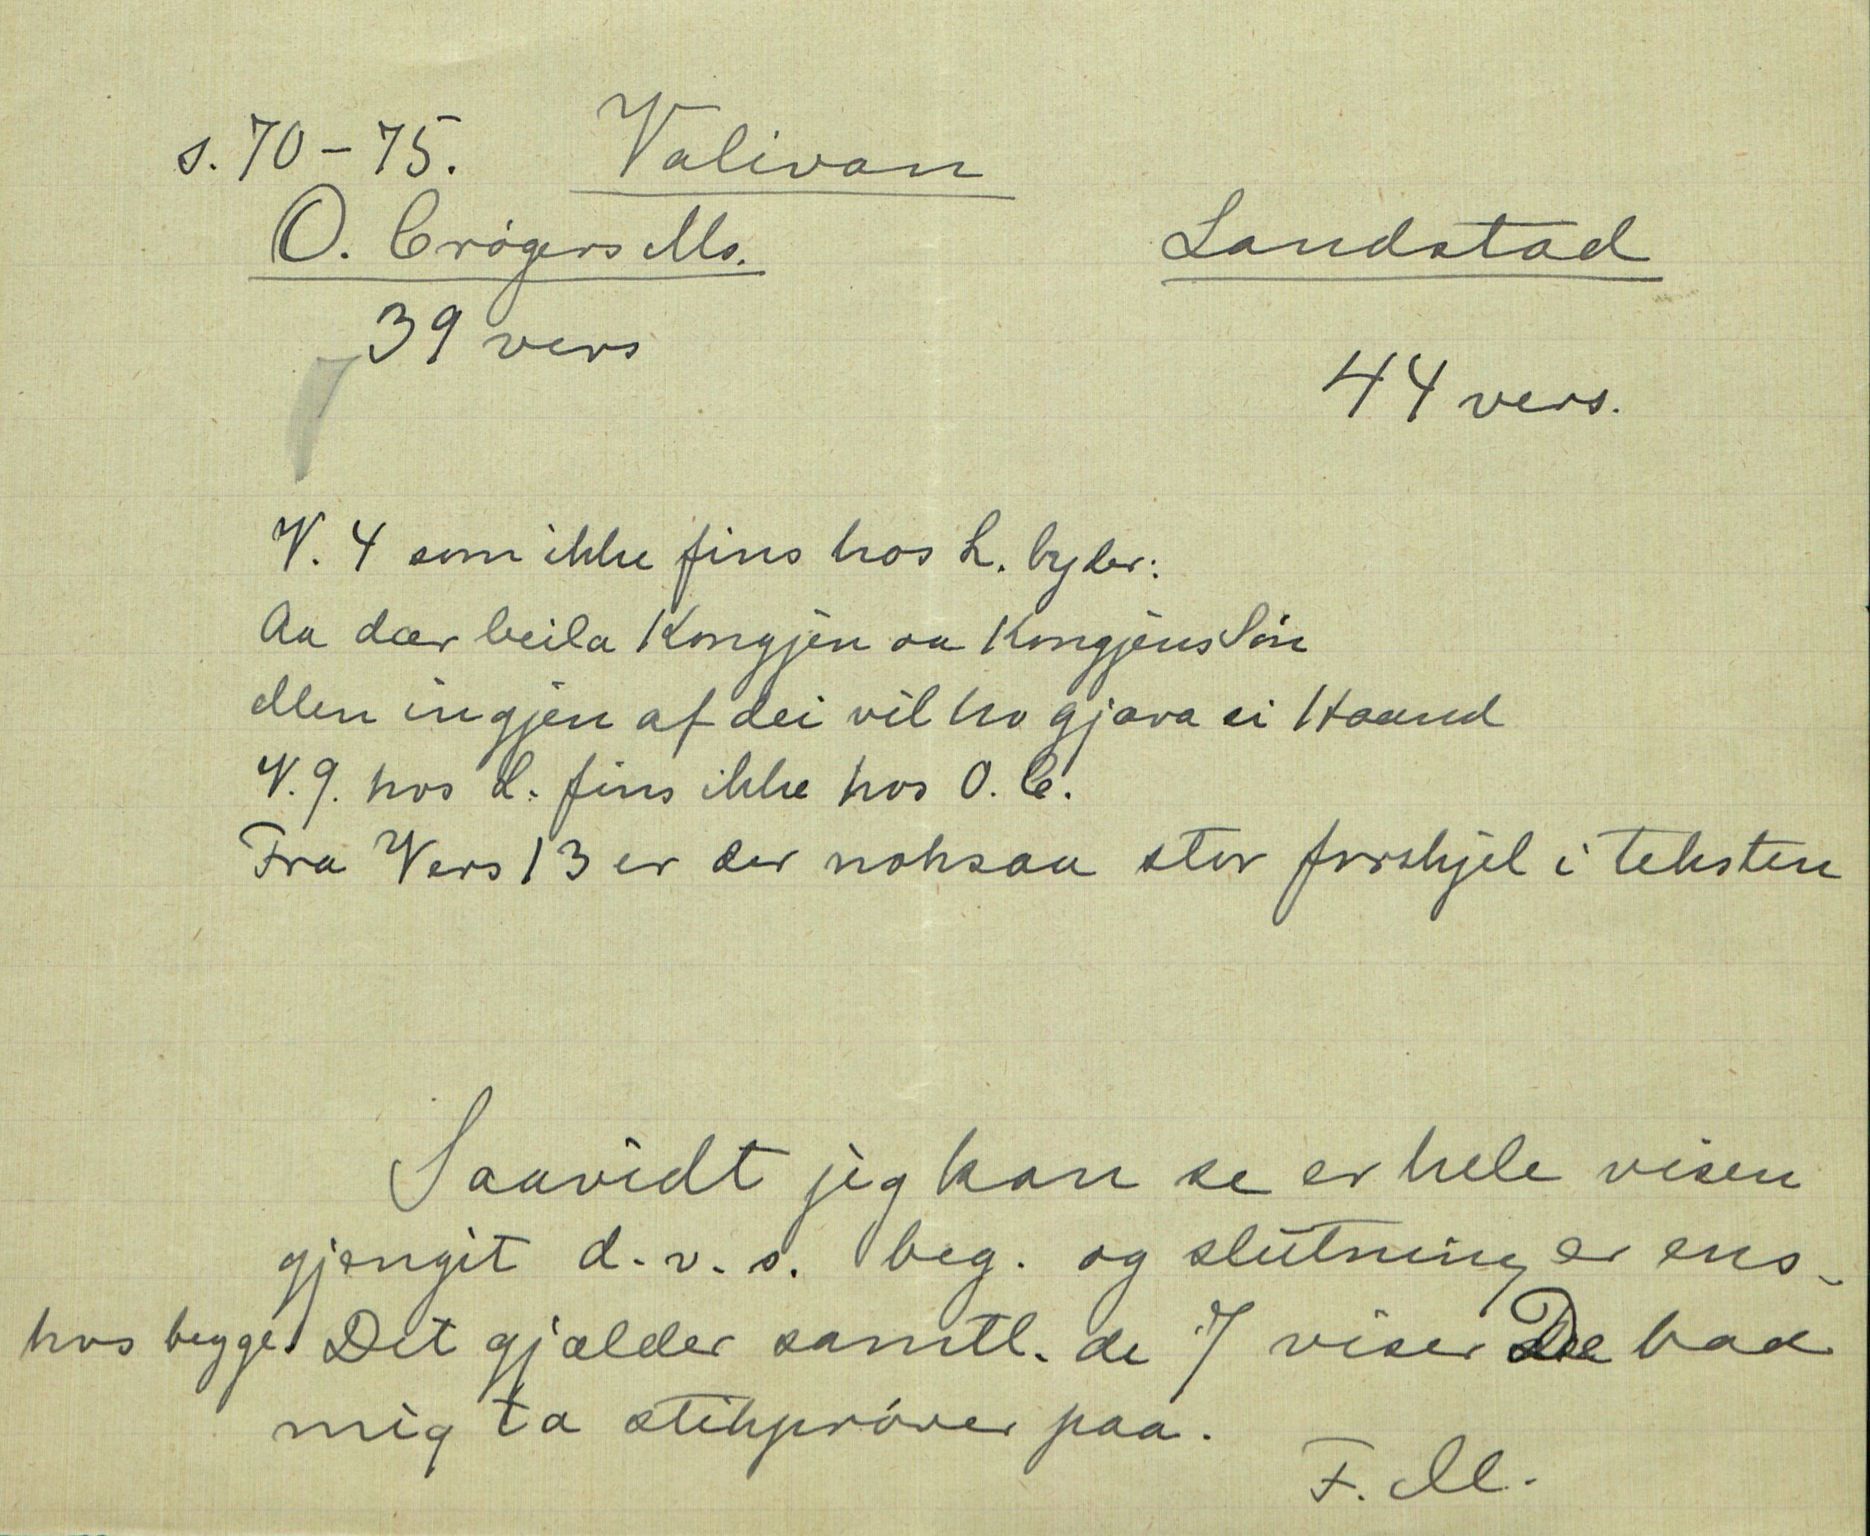 s. 70-75. Valivan
O. Crögers Ms. Landstad
39 vers
44 vers.
V. 4 som ikke fins hos L. lyder:
Aa dær beila Kongjen aa Kongjens Sön
Men ingjen af dei vil ho gjava si Haand
V. 9. hos L. fins ikke hos O. C.
Fra Vers 13 er der noksaa stor forskjel i teksten
Saavidt jeg kan se er hele visen
gjengit d.v.s. beg. og slutning er ens
hos begge. Det gjælder samtl. de 7 viser De bad
mig ta stikpröver paa.
F. M.